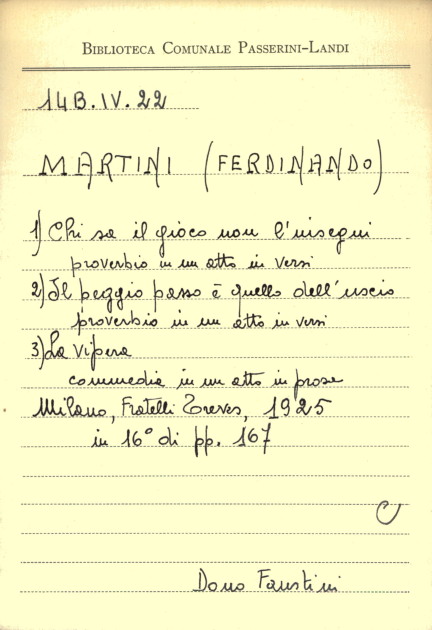 BIBLIOTECA COMUNALE PASSERINI-LANDI
14B.IV.22
MARTINI (FERDINANDO)
1) Chi sa il gioco non l'insegni
proverbio in un atto in versi
2) Il peggio passo è quello dell'uscio
proverbio in un atto in versi
3) La vipera
commedia in un atto in prosa
Milano, Fratelli Treves, 1925
in 16° di pp. 167
C
Dono Faustini